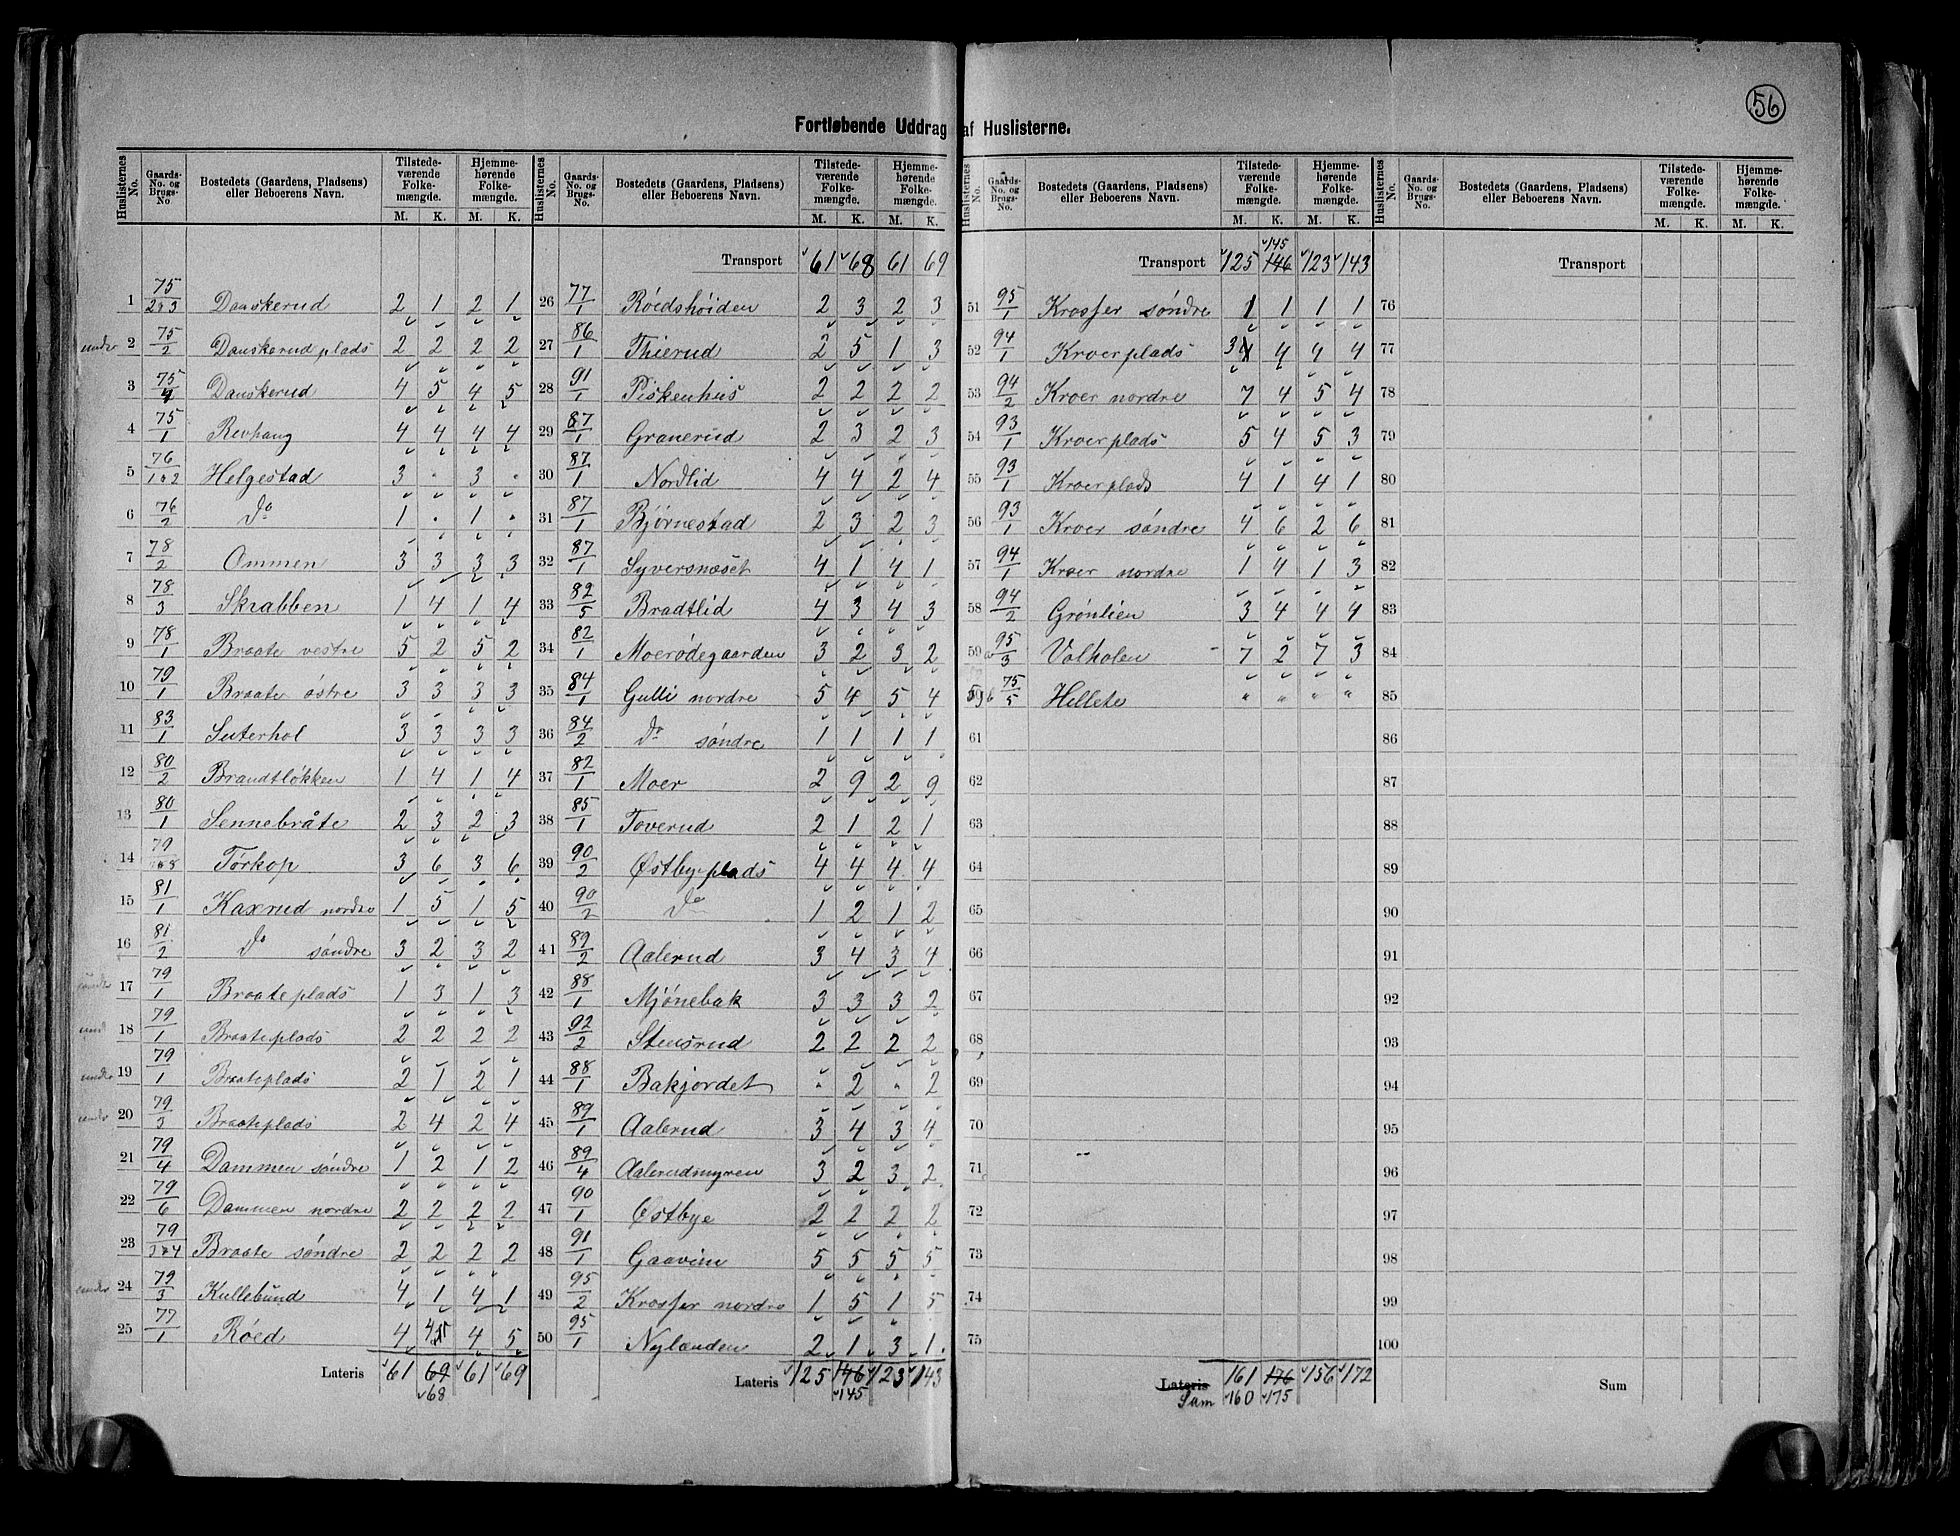 56
Fortløbende Uddrag af Huslisterne.
Huslisternes No. | Gaards-No. og Brugs-No. | Bostedets (Gaardens, Pladsens) eller Beboerens Navn. | Tilstedeværende Folkemængde. M. K. | Hjemmehørende Folkemængde. M. K.
1 75/2&3 Danskerud 2 1 2 1
under 2 75/2 Danskerudplads 2 2 2 2
3 75/4 Danskerud 4 5 4 5
4 75/1 Revhaug 4 4 4 4
5 76/1&2 Helgestad 3 . 3 .
6 76/2 Do 1 . 1 .
7 78/2 Ommen 3 3 3 3
8 78/3 Skrabben 1 4 1 4
9 78/1 Braate vestre 5 2 5 2
10 79/1 Braate østre 3 3 3 3
11 83/1 Suterhol 3 3 3 3
12 80/2 Brandtløkken 1 4 1 4
13 80/1 Sennebråte 2 3 2 3
14 79 Torkop 3 6 3 6
15 81/1 Kaxrud nordre 1 5 1 5
16 81/2 Do søndre 3 2 3 2
under 17 79/1 Braateplads 1 3 1 3
und 18 79/1 Braateplads 2 2 2 2
under 19 79/1 Braateplads 2 1 2 1
under 20 79/3 Braateplads 2 4 2 4
21 79/4 Dammen søndre 1 2 1 2
22 79/6 Dammen nordre 2 2 2 2
23 79 Braate søndre 2 2 2 2
under 24 79/3 Kullebund 4 1 4 1
25 77/1 Røed 4 4 4 5
Lateris 61 69 61 69
68
Huslisternes No. | Gaards-No. og Brugs-No. | Bostedets (Gaardens, Pladsens) eller Beboerens Navn. | Tilstedeværende Folkemængde. M. K. | Hjemmehørende Folkemængde. M. K.
Transport 61 68 61 69
26 77/1 Røedshøiden 2 3 2 3
27 86/1 Thierud 2 5 1 3
28 91/1 Piskenhus 2 2 2 2
29 87/1 Granerud 2 3 2 3
30 87/1 Nordlid 4 4 2 4
31 87/1 Bjørnestad 2 3 2 3
32 87/1 Syversnæset 4 1 4 1
33 82/5 Bradtlid 4 3 4 3
34 82/1 Moerødegaarden 3 2 3 2
35 84/1 Gulli nordre 5 4 5 4
36 84/2 Do søndre 1 1 1 1
37 82/1 Moer 2 9 2 9
38 85/1 Toverud 2 1 2 1
39 90/2 Østbyeplads 4 4 4 4
40 90/2 Do 1 2 1 2
41 89/2 Aalerud 3 4 3 4
42 88/1 Mjønebak 3 3 3 2
43 92/2 Stensrud 2 2 2 2
44 88/1 Bakjordet " 2 " 2
45 89/1 Aalerud 3 4 3 4
46 89/4 Aalerudmyren 3 2 3 2
47 90/1 Østbye 2 2 2 2
48 91/1 Gaavim 5 5 5 5
49 95/2 Krosser nordre 1 5 1 5
50 95/1 Nylænden 2 1 3 1
Lateris 125 146 123 143
145
Huslisternes No. | Gaards-No. og Brugs-No. | Bostedets (Gaardens, Pladsens) eller Beboerens Navn. | Tilstedeværende Folkemængde. M. K. | Hjemmehørende Folkemængde. M. K.
145
Transport 125 146 123 143
51 95/1 Krosser søndre 1 1 1 1
52 94/1 Kroerplads 3 4 4 4
53 94/2 Kroer nordre 7 4 5 4
54 93/1 Kroerplads 5 4 5 3
55 93/1 Kroerplads 4 1 4 1
56 93/1 Kroer søndre 4 6 2 6
57 94/1 Kroer nordre 1 4 1 3
58 94/2 Grønlien 3 4 4 4
59a 95/3 Volholen 7 2 7 3
59b 75/5 Hellete " " " "
61
62
63
64
65
66
67
68
69
70
71
72
73
74
75
Lateris 161 176 156 172
Sum 160 175
Huslisternes No. | Gaards-No. og Brugs-No. | Bostedets (Gaardens, Pladsens) eller Beboerens Navn. | Tilstedeværende Folkemængde. M. K. | Hjemmehørende Folkemængde. M. K.
Transport
76
77
78
79
80
81
82
83
84
85
86
87
88
89
90
91
92
93
94
95
96
97
98
99
100
Sum